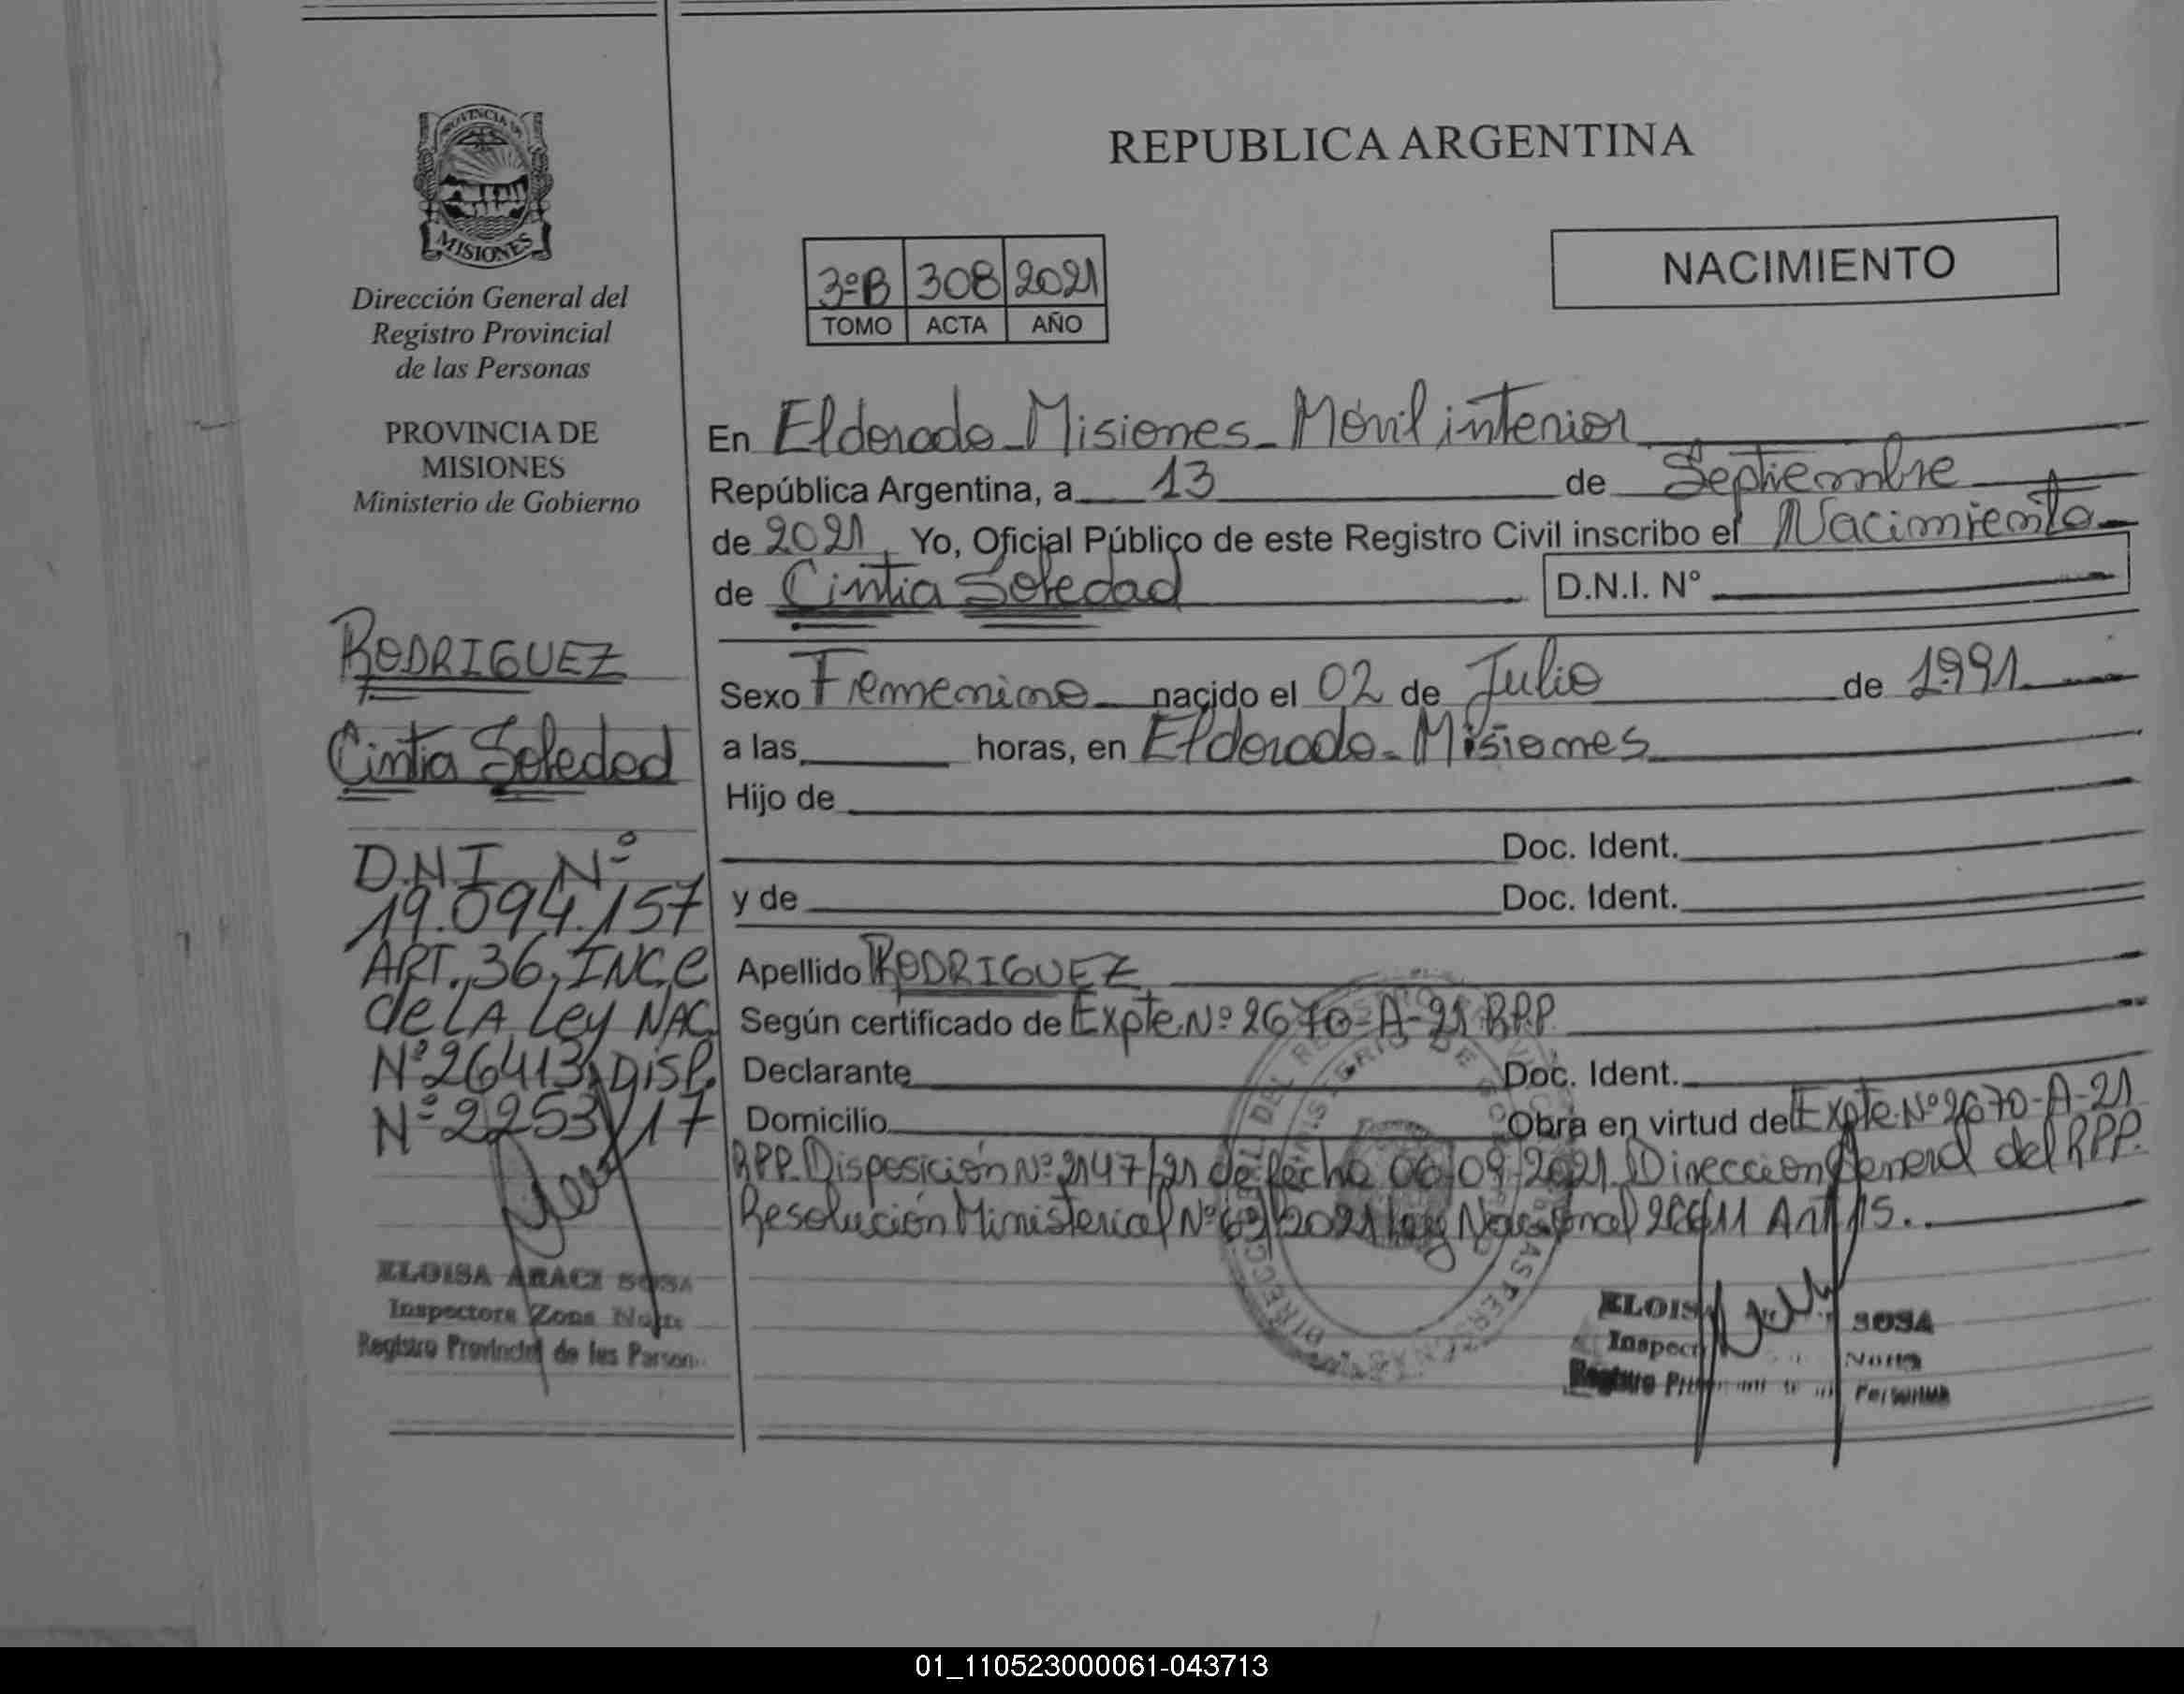 PROVINCIA DE
MISIONES
Dirección General del
Registro Provincial
de las Personas
PROVINCIA DE
MISIONES
Ministerio de Gobierno
RODRIGUEZ
Cintia Soledad
D.N.I. Nº
19.094.157
ART. 36, INC. C
de LA Ley NAC.
Nº 26413, DISP.
Nº 2253/17
ELOISA ARACI SOSA
Inspectora Zona Norte
Registro Provincial de las Person
REPUBLICA ARGENTINA
NACIMIENTO
3ºB 308 2021
TOMO ACTA AÑO
En Eldorado - Misiones - Móvil interior
República Argentina, a 13 de Septiembre
de 2021, Yo, Oficial Público de este Registro Civil inscribo el Nacimiento
de Cintia Soledad D.N.I. N°
Sexo Femenino nacido el 02 de Julio de 1991
a las horas, en Eldorado - Misiones
Hijo de
Doc. Ident.
y de Doc. Ident.
Apellido RODRIGUEZ
Según certificado de Expte Nº 2670-A-21 RPP.
Declarante Doc. Ident.
Domicilio Obra en virtud del Expte. Nº 2670-A-21
RPP. Disposición Nº 2147/21 de fecha 06/09/2021 Dirección General del RPP.
Resolución Ministerial Nº 69/2021 Ley Nacional 26611 Art 15.
ELOIS SOSA
Inspect Norte
Registro Personas
01_110523000061-043713